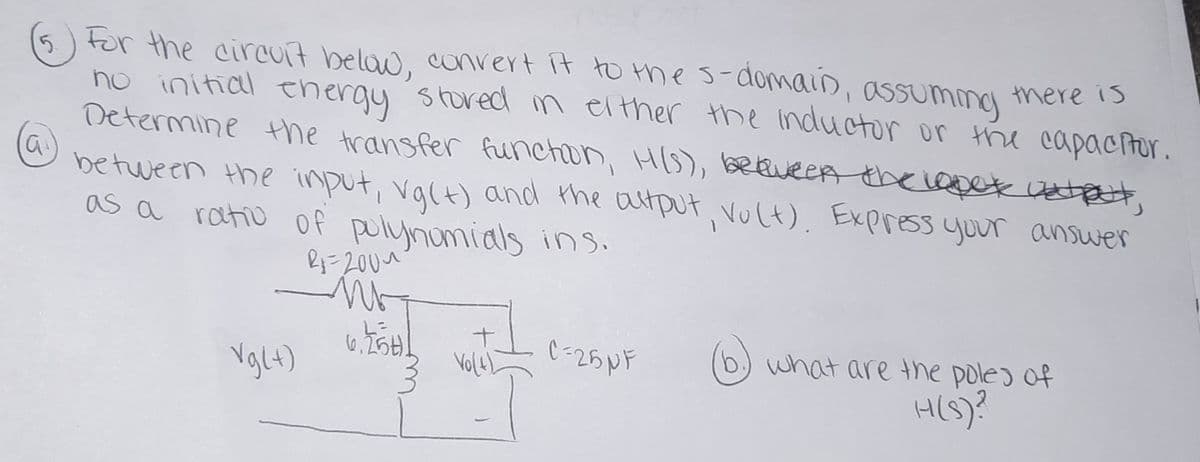 5. For the circuit below, convert it to the s-domain, assuming there is
no initial energy stored in either the inductor or the capacitor.
a. Determine the transfer function, H(s),
between the input, vg(t) and the output, vo(t). Express your answer
as a ratio of polynomials in s.
R1=200Ω
L=
6.25H
Vg(t)
+
Vo(t)
-
C=25μF
b. what are the poles of
H(s)?